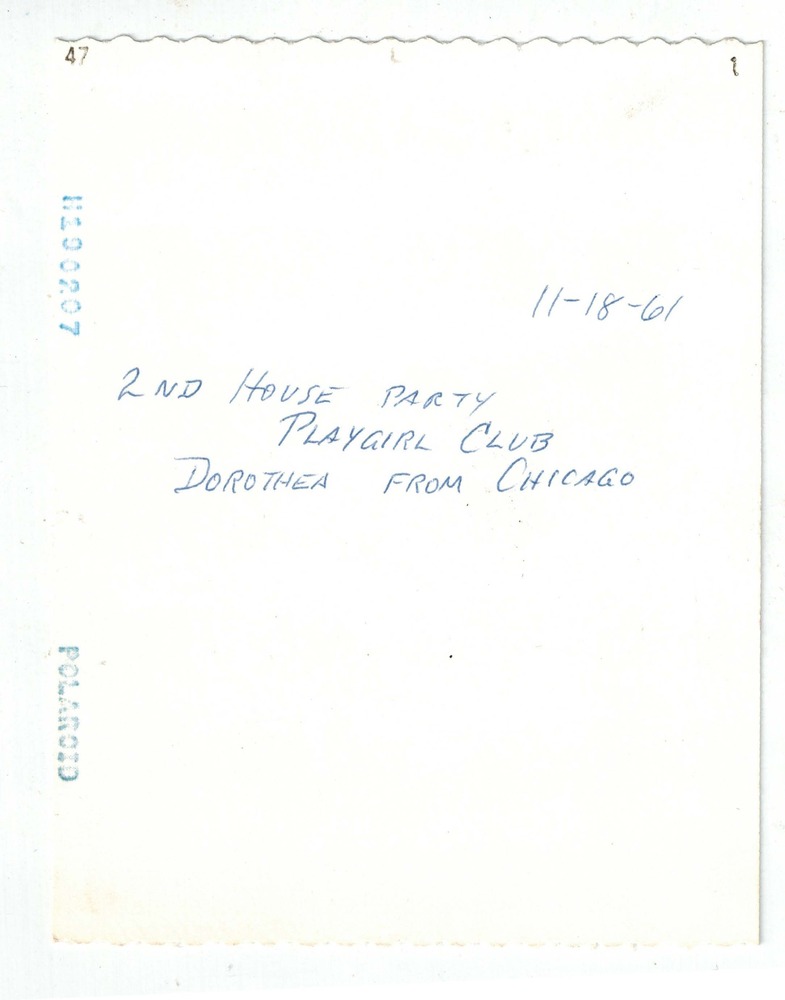 47
1
H190207
11-18-61
2ND HOUSE PARTY
PLAYGIRL CLUB
DOROTHEA FROM CHICAGO
POLAROID